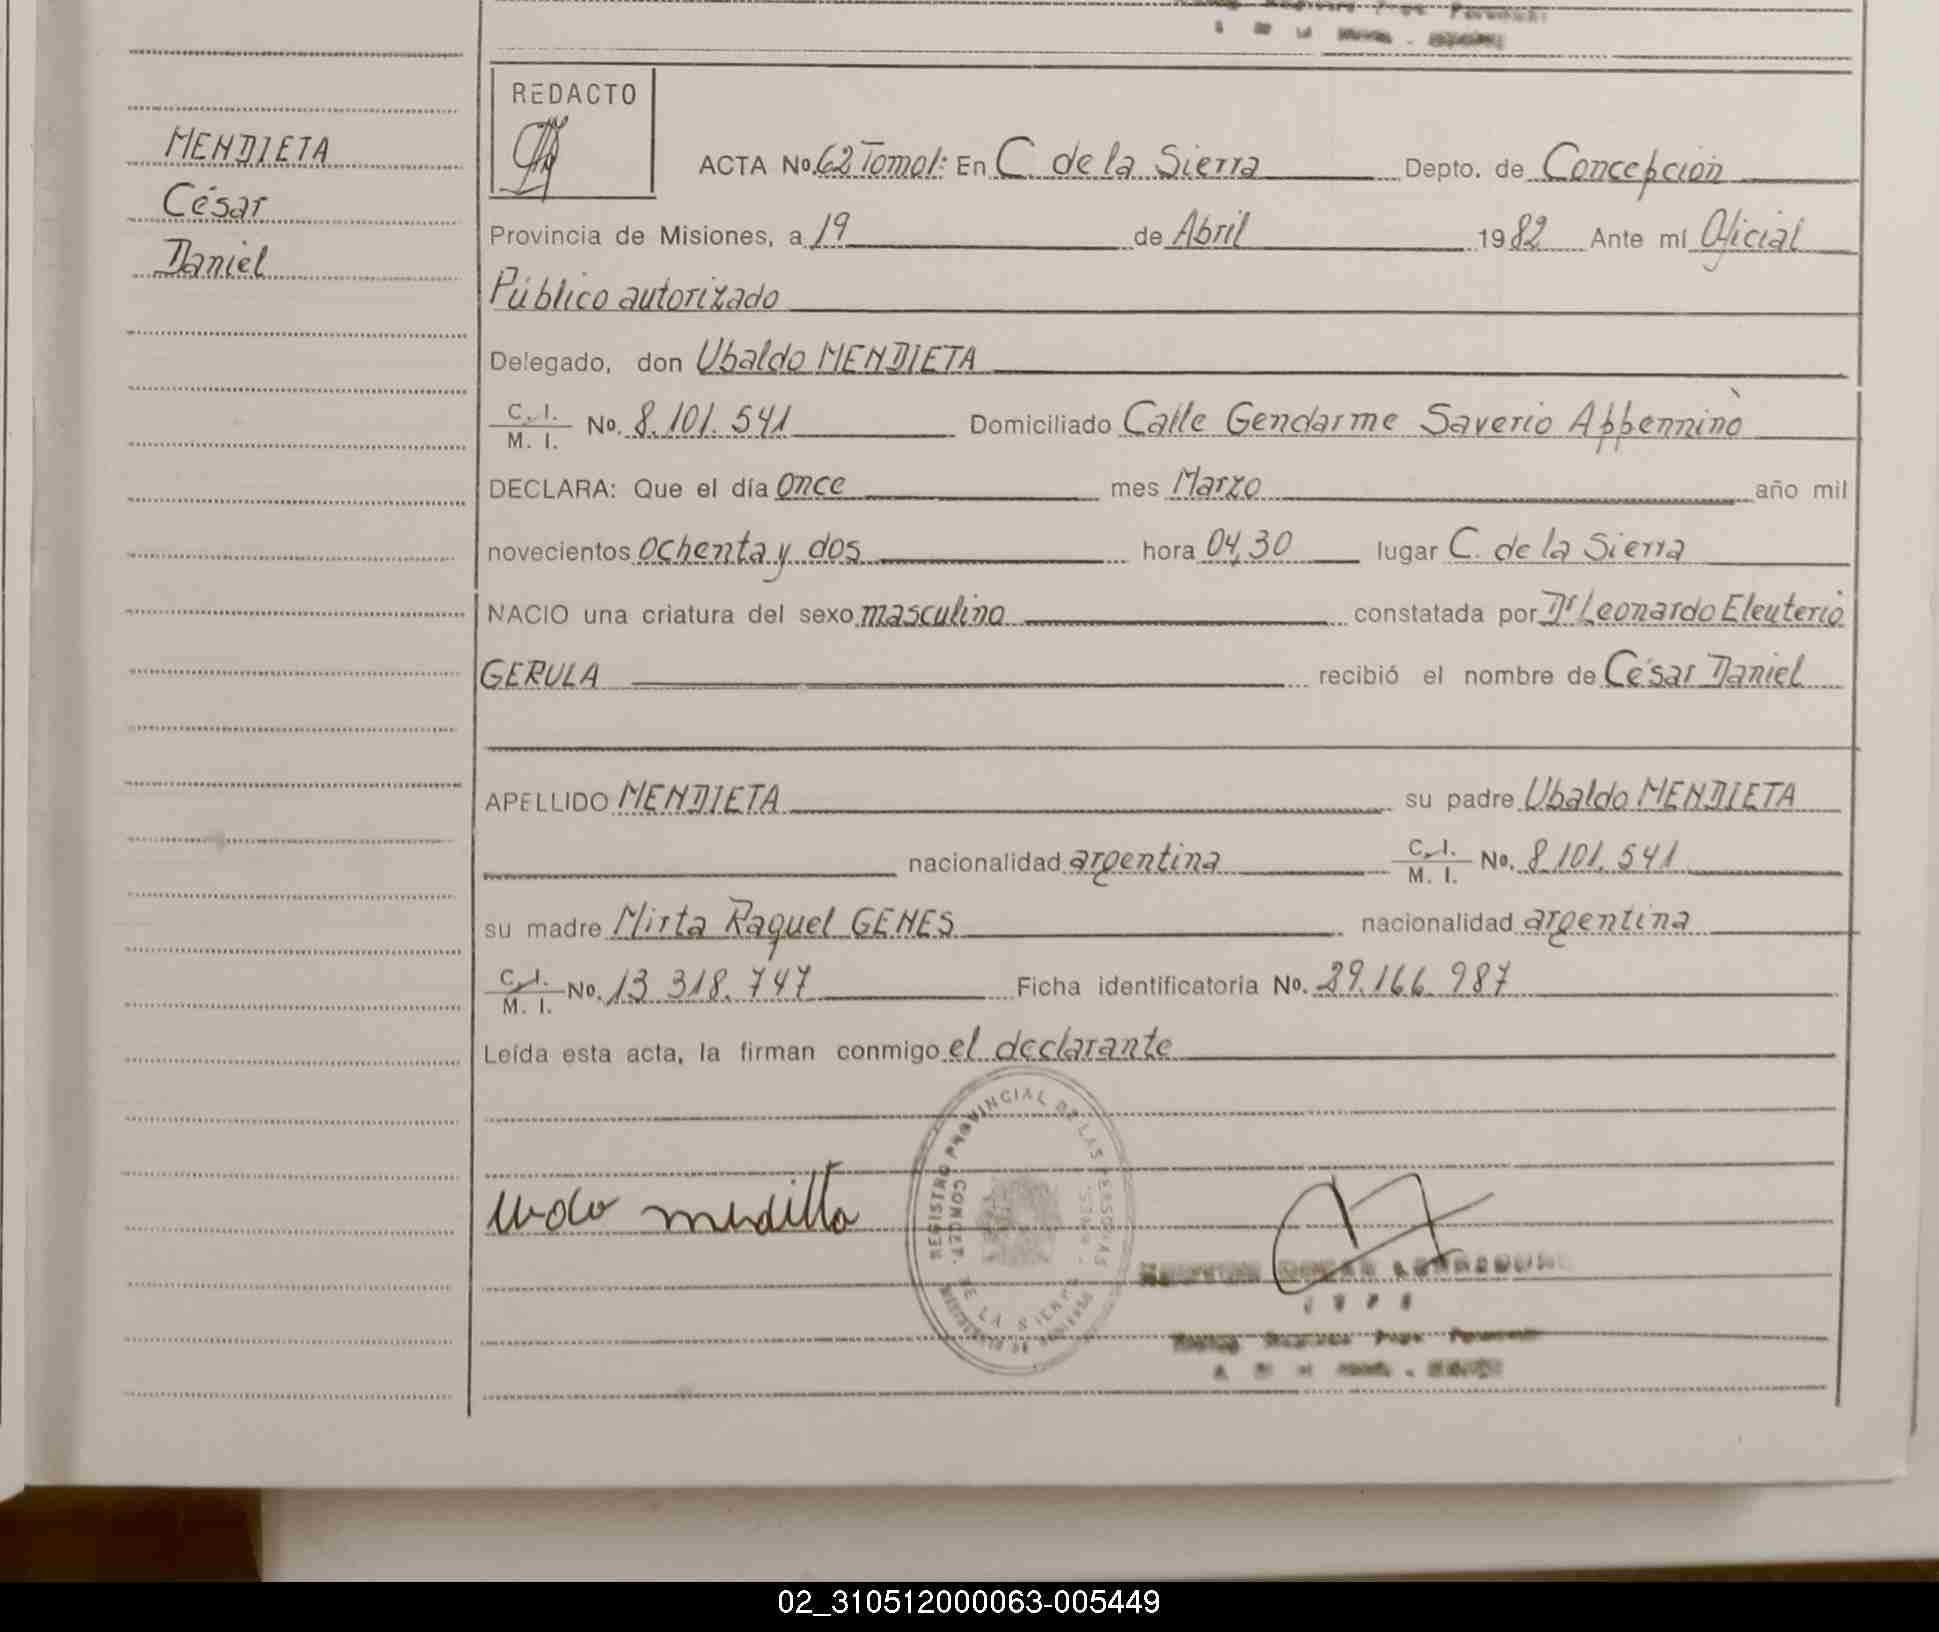 MENDIETA
César
Daniel
REDACTO
ACTA No. 62 Tomo I: En C. de la Sierra Depto. de Concepción
Provincia de Misiones, a 19 de Abril 1982 Ante mí Oficial
Público autorizado
Delegado, don Ubaldo MENDIETA
C. I. / M. I. No. 8.101.541 Domiciliado Calle Gendarme Saverio Appennino
DECLARA: Que el día once mes Marzo año mil
novecientos ochenta y dos hora 04,30 lugar C. de la Sierra
NACIO una criatura del sexo masculino constatada por Dr Leonardo Eleuterio
GERULA recibió el nombre de César Daniel
APELLIDO MENDIETA su padre Ubaldo MENDIETA
nacionalidad argentina C. I. / M. I. No. 8.101.541
su madre Mirta Raquel GENES nacionalidad argentina
C. I. / M. I. No. 13.318.747 Ficha identificatoria No. 29.166.987
Leída esta acta, la firman conmigo el declarante
REGISTRO PROVINCIAL DE LAS PERSONAS
DE LA SIERRA
02_310512000063-005449